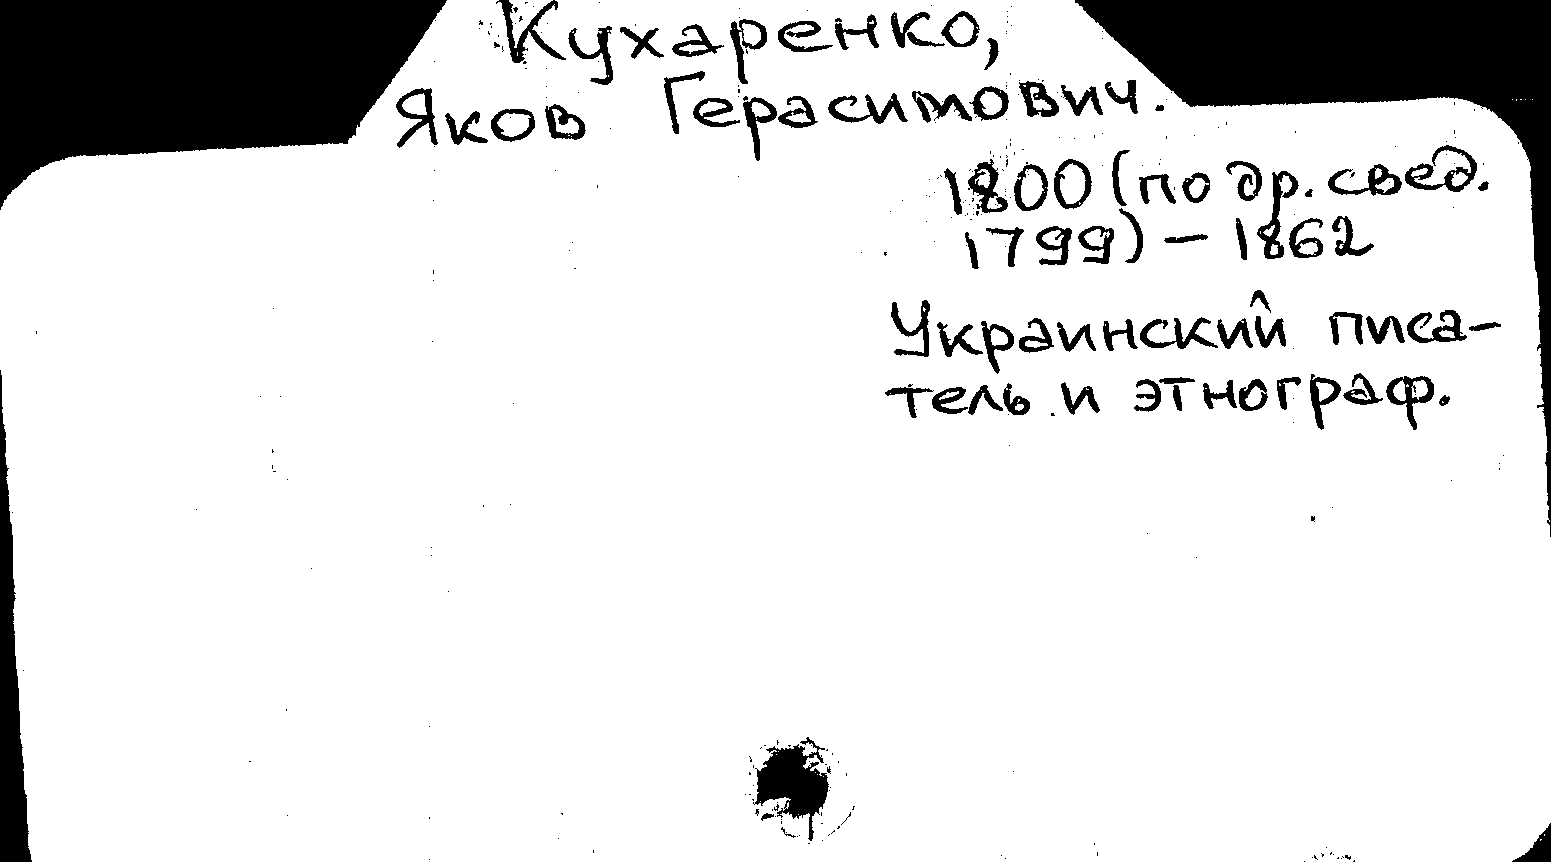 Кухаренко,
Яков Герасимович.
1800 (по др. свед.
1799) – 1862
Украинский писа-
тель и этнограф.